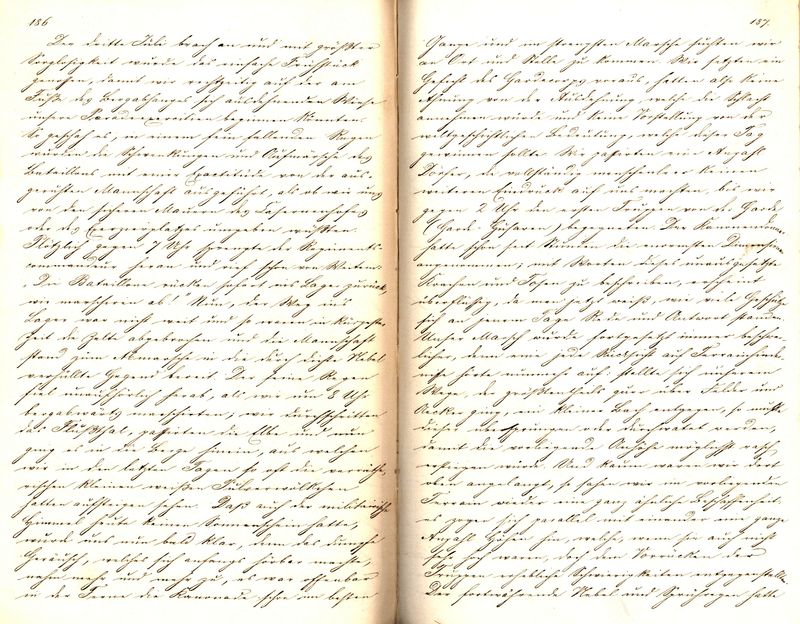 186
Der dritte Juli brach an und mit größter
Sorglosigkeit wurde das einfache Frühstück
genossen, damit wir rechtzeitig auf der am
Fuße des Bergabhanges sich ausdehnenden Wiese
unsere Paradeexercitien beginnen konnten.
So geschah es, in einem fein fallenden Regen
wurden die Schwenkungen und Aufmärsche des
Bataillons mit einer Exactitüde von der aus-
geruhten Mannschaft ausgeführt, als ob wir uns
von den sicheren Mauern des Casernenhofes
oder des Exerzierplatzes umgeben wüßten.
Plötzlich gegen 7 Uhr sprengte der Regiments-
commandeur heran und rief schon von Weitem:
„Die Bataillone rücken sofort ins Lager zurück,
wir marschiren ab!" Nun, der Weg ins
Lager war nicht weit und so waren in kürzester
Zeit die Zelte abgebrochen und die Mannschaft
stand zum Abmarsche in die durch dichten Nebel
verhüllte Gegend bereit. Der feine Regen
fiel unaufhörlich herab, als wir um 8 Uhr
bergabwärts marschirten; wir durchschritten
das Flußthal, passirten die Elbe und nun
ging es in die Berge hinein, aus welchen
wir in den letzten Tagen so oft die verräthe-
rischen kleinen weißen Pulverwölkchen
hatten aufsteigen sehen. Daß auch der militärische
Himmel heute keinen Sonnenschein hatte,
wurde uns nun bald klar, denn das dumpfe
Geräusch, welches sich anfangs hörbar machte,
nahm mehr und mehr zu, es war offenbar
in der Ferne die Kanonade schon im besten
187
Gange und im strengsten Marsche suchten wir
an Ort und Stelle zu kommen. Wir setzten ein
Gefecht des Gardecorps voraus, hatten also keine
Ahnung von der Ausdehnung, welche die Schlacht
annehmen würde und keine Vorstellung von der
weltgeschichtlichen Bedeutung, welche dieser Tag
gewinnen sollte. Wir passirten eine Anzahl
Dörfer, die vollständig menschenleer keinen
weiteren Eindruck auf uns machten, bis wir
gegen 2 Uhr den ersten Truppen von der Garde
(Garde Husaren) begegneten. Der Kanonendonner
hatte schon seit Stunden die enormsten Dimensionen
angenommen; mit Worten dieses unausgesetzte
Krachen und Tosen zu beschreiben, erscheint
überflüssig, da man jetzt weiß, wie viele Geschütze
sich an jenem Tage Rede und Antwort standen.
Unser Marsch wurde fortgesetzt immer beschwer-
licher, denn eine jede Rücksicht auf Terrainhinder-
nisse hörte nunmehr auf. Stellte sich unserem
Wege, der größtentheils quer über Felder und
Aecker ging ein kleiner Bach entgegen, so mußte
dieser übersprungen oder durchwatet werden,
damit die vorliegende Anhöhe möglichst rasch
erstiegen würde. Und kaum waren wir dort
oben angelangt, so sahen wir im vorliegenden
Terrain wieder eine ganz ähnliche Beschaffenheit.
es zogen sich parallel mit einander eine ganze
Anzahl Höhen hin, welche, wenn sie auch nicht
sehr hoch waren, doch dem Vorrücken der
Truppen erhebliche Schwierigkeiten entgegenstellten.
Der fortwährende Nebel und Sprühregen hatte